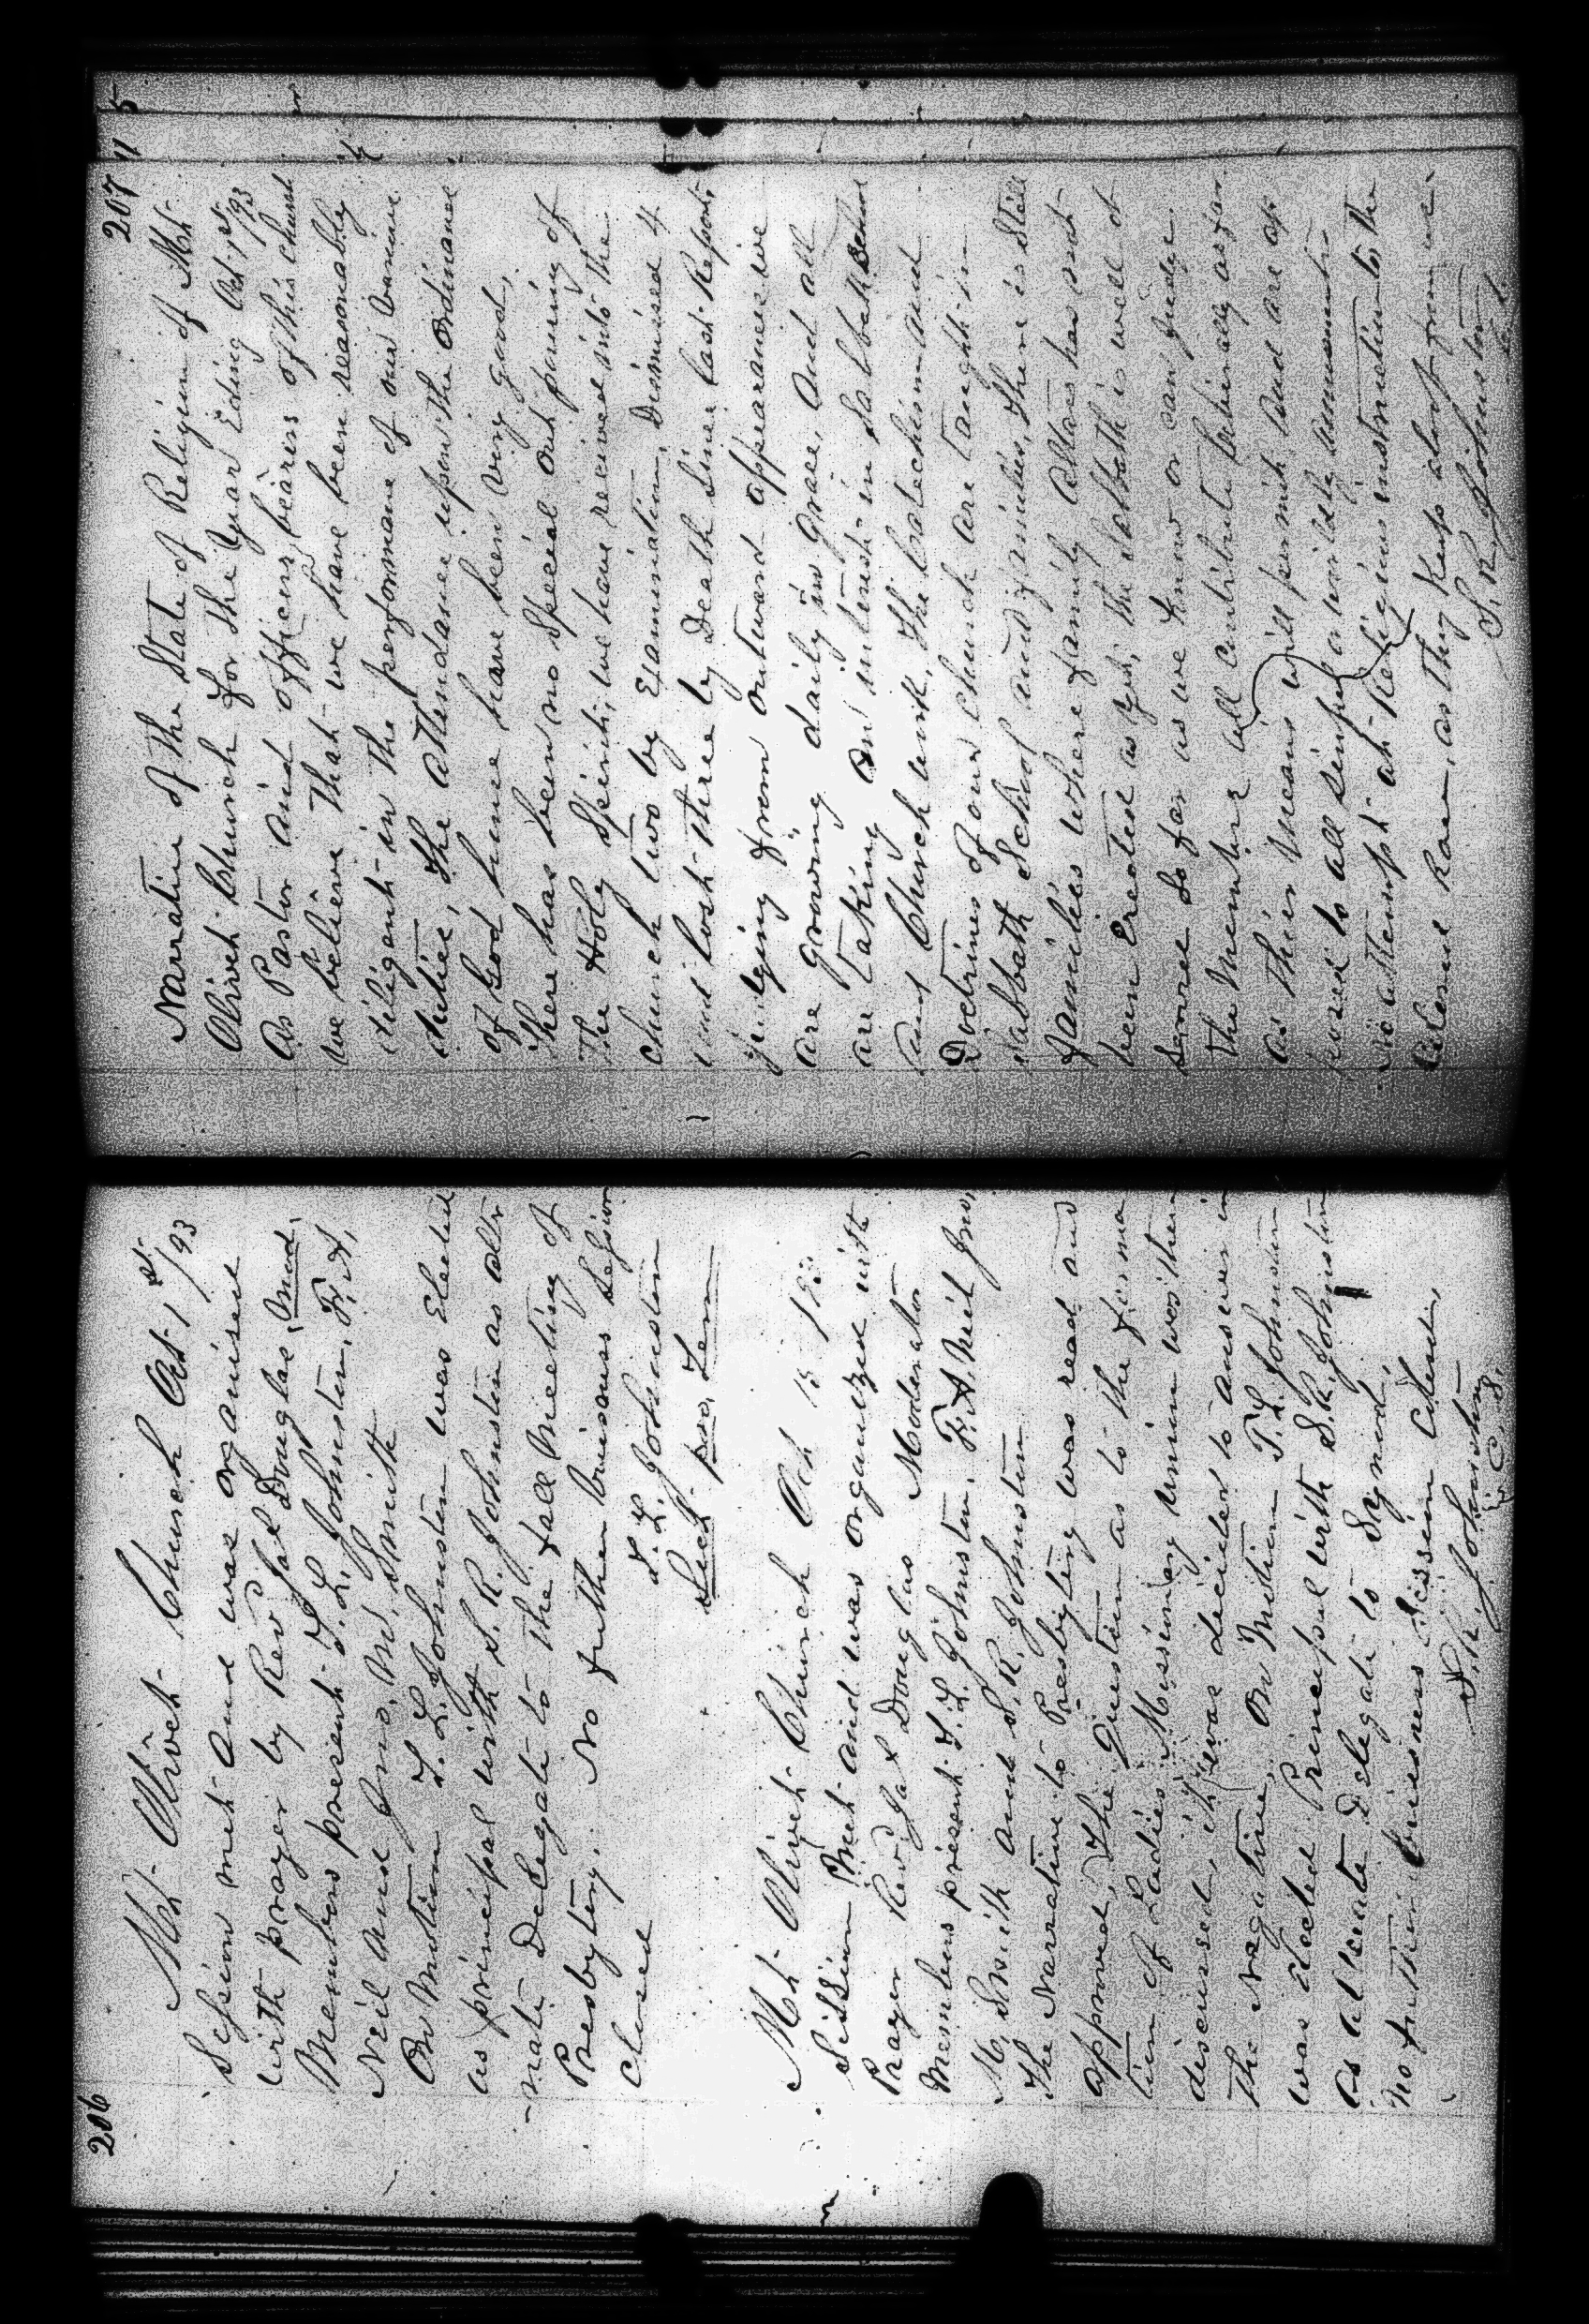 206
Mt Olivet Church Oct 1st/93
Session met and was organised
with prayer by Rev Jas Douglas, Mod.
Members present T. L. Johnston, F. A.
Neil and Jno. M. Smith
On Motion T. L. Johnston was Elected
as principal with S. R. Johnston as alter
-nate Delegate to the fall Meeting of
Presbytery. No further buisness Session
Closed
T. L. Johnston
Sect pro. Tem
Mt Olivet Church Oct 15
Session Met and was organized with
Prayer Rev Jas Douglas Moderator
Members present T. L. Johnston, F. A. Neil Jno,
M. Smith and S. R. Johnston
The Narrative to Presbytery was read and
approved, The Question as to the forma
tion of Ladies Missionary Union was then
discussed, it was decided to answer in
the Negative, On Motion T. L. Johnston
was elected Principal with S. R. Johnston
as alternate Delegate to Synod,
No further buisness Session Closed,
S. R. Johnston
C. S.
207
Narrative of the State of Religion of Mt
Olivet Church for the Year Eding Oct 1st/93
As Pastor and officers bearers of this church
we believe that we have been reasonably
diligent in the performance of our various
duties, The attendance upon the ordinances
of God house have been very good,
There has been no Special out pouring of
The Holy Spirit, we have received into the
Church two by Examination, Dismissed 4
and lost three by Death since last Report,
Judging from outward appearance we
are growing daily in grace, and all
are taking an interest in Sabbath School
and Church work, The Catechism and
Doctrines of our church are taught in
Sabbath School and families, There is Still
families where family Altars has not
been Erected as yet, The Sabbath is well ob
served So far as we know or can judge
the Members all contribute liberally as far
as their means will permit and are op
posed to all sinful or worldly amusements
No attempt at Religious instruction to the
Colored Race, as they keep aloof from us.
S. R. Johnston